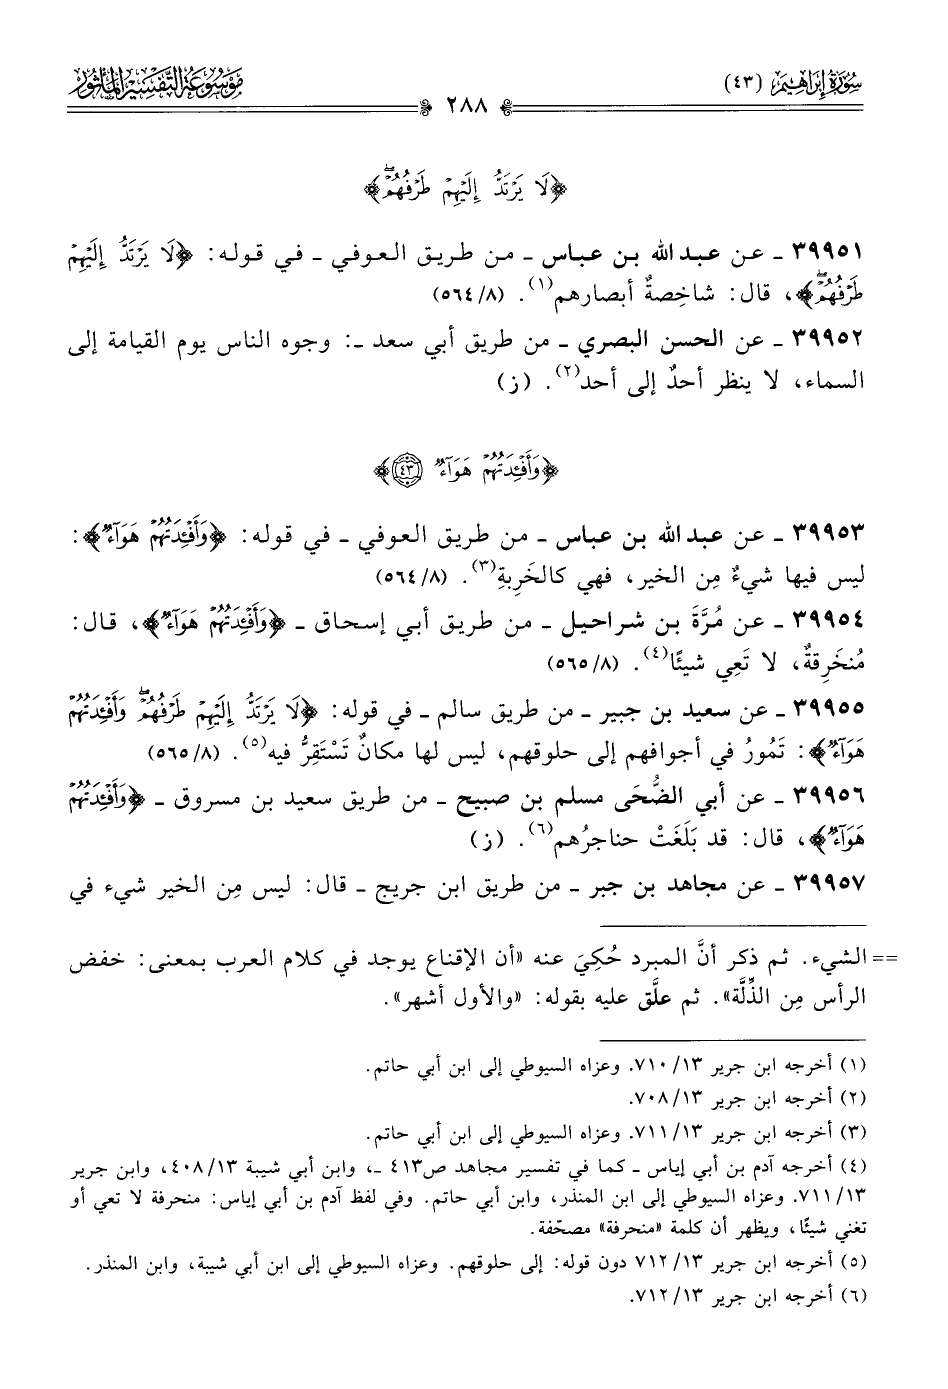 سُورَةُ إبْرَاهِيم (٤٣)
موسُوعَة التَّفسِير المأثور
٢٨٨
﴿لَا يَرْتَدُّ إِلَيْهِمْ طَرْفُهُمْۖ﴾
٣٩٩٥١ ـ عن عبد الله بن عباس ـ من طريق العوفي ـ في قوله: ﴿لَا يَرْتَدُّ إِلَيْهِمْ
طَرْفُهُمْۖ﴾، قال: شاخِصةٌ أبصارهم(١). (٥٦٤/٨)
٣٩٩٥٢ ـ عن الحسن البصري ـ من طريق أبي سعد ـ: وجوه الناس يوم القيامة إلى
السماء، لا ينظر أحدٌ إلى أحد(٢). (ز)
﴿وَأَفْـِٔدَتُهُمْ هَوَآءٌ ٤٣﴾
٣٩٩٥٣ ـ عن عبد الله بن عباس ـ من طريق العوفي ـ في قوله: ﴿وَأَفْـِٔدَتُهُمْ هَوَآءٌ﴾:
ليس فيها شيءٌ مِن الخير، فهي كالخَرِبةِ(٣). (٥٦٤/٨)
٣٩٩٥٤ ـ عن مُرَّةَ بن شراحيل ـ من طريق أبي إسحاق ـ ﴿وَأَفْـِٔدَتُهُمْ هَوَآءٌ﴾، قال:
مُنخَرِقةٌ، لا تَعِي شيئًا(٤). (٥٦٥/٨)
٣٩٩٥٥ ـ عن سعيد بن جبير ـ من طريق سالم ـ في قوله: ﴿لَا يَرْتَدُّ إِلَيْهِمْ طَرْفُهُمْۖ وَأَفْـِٔدَتُهُمْ
هَوَآءٌ﴾: تَمُورُ في أجوافهم إلى حلوقهم، ليس لها مكانٌ تَسْتَقِرُّ فيه(٥). (٥٦٥/٨)
٣٩٩٥٦ ـ عن أبي الضُّحَى مسلم بن صبيح ـ من طريق سعيد بن مسروق ـ ﴿وَأَفْـِٔدَتُهُمْ
هَوَآءٌ﴾، قال: قد بَلَغَتْ حناجرُهم(٦). (ز)
٣٩٩٥٧ ـ عن مجاهد بن جبر ـ من طريق ابن جريج ـ قال: ليس مِن الخير شيء في
== الشيء. ثم ذكر أنَّ المبرد حُكِيَ عنه «أن الإقناع يوجد في كلام العرب بمعنى: خفض
الرأس مِن الذِّلَّة». ثم علَّق عليه بقوله: «والأول أشهر».
(١) أخرجه ابن جرير ٧١٠/١٣. وعزاه السيوطي إلى ابن أبي حاتم.
(٢) أخرجه ابن جرير ٧٠٨/١٣.
(٣) أخرجه ابن جرير ٧١١/١٣. وعزاه السيوطي إلى ابن أبي حاتم.
(٤) أخرجه آدم بن أبي إياس ـ كما في تفسير مجاهد ص٤١٣ ـ، وابن أبي شيبة ٤٠٨/١٣، وابن جرير
٧١١/١٣. وعزاه السيوطي إلى ابن المنذر، وابن أبي حاتم. وفي لفظ آدم بن أبي إياس: منحرفة لا تعي أو
تغني شيئًا، ويظهر أن كلمة «منحرفة» مصحّفة.
(٥) أخرجه ابن جرير ٧١٢/١٣ دون قوله: إلى حلوقهم. وعزاه السيوطي إلى ابن أبي شيبة، وابن المنذر.
(٦) أخرجه ابن جرير ٧١٢/١٣.